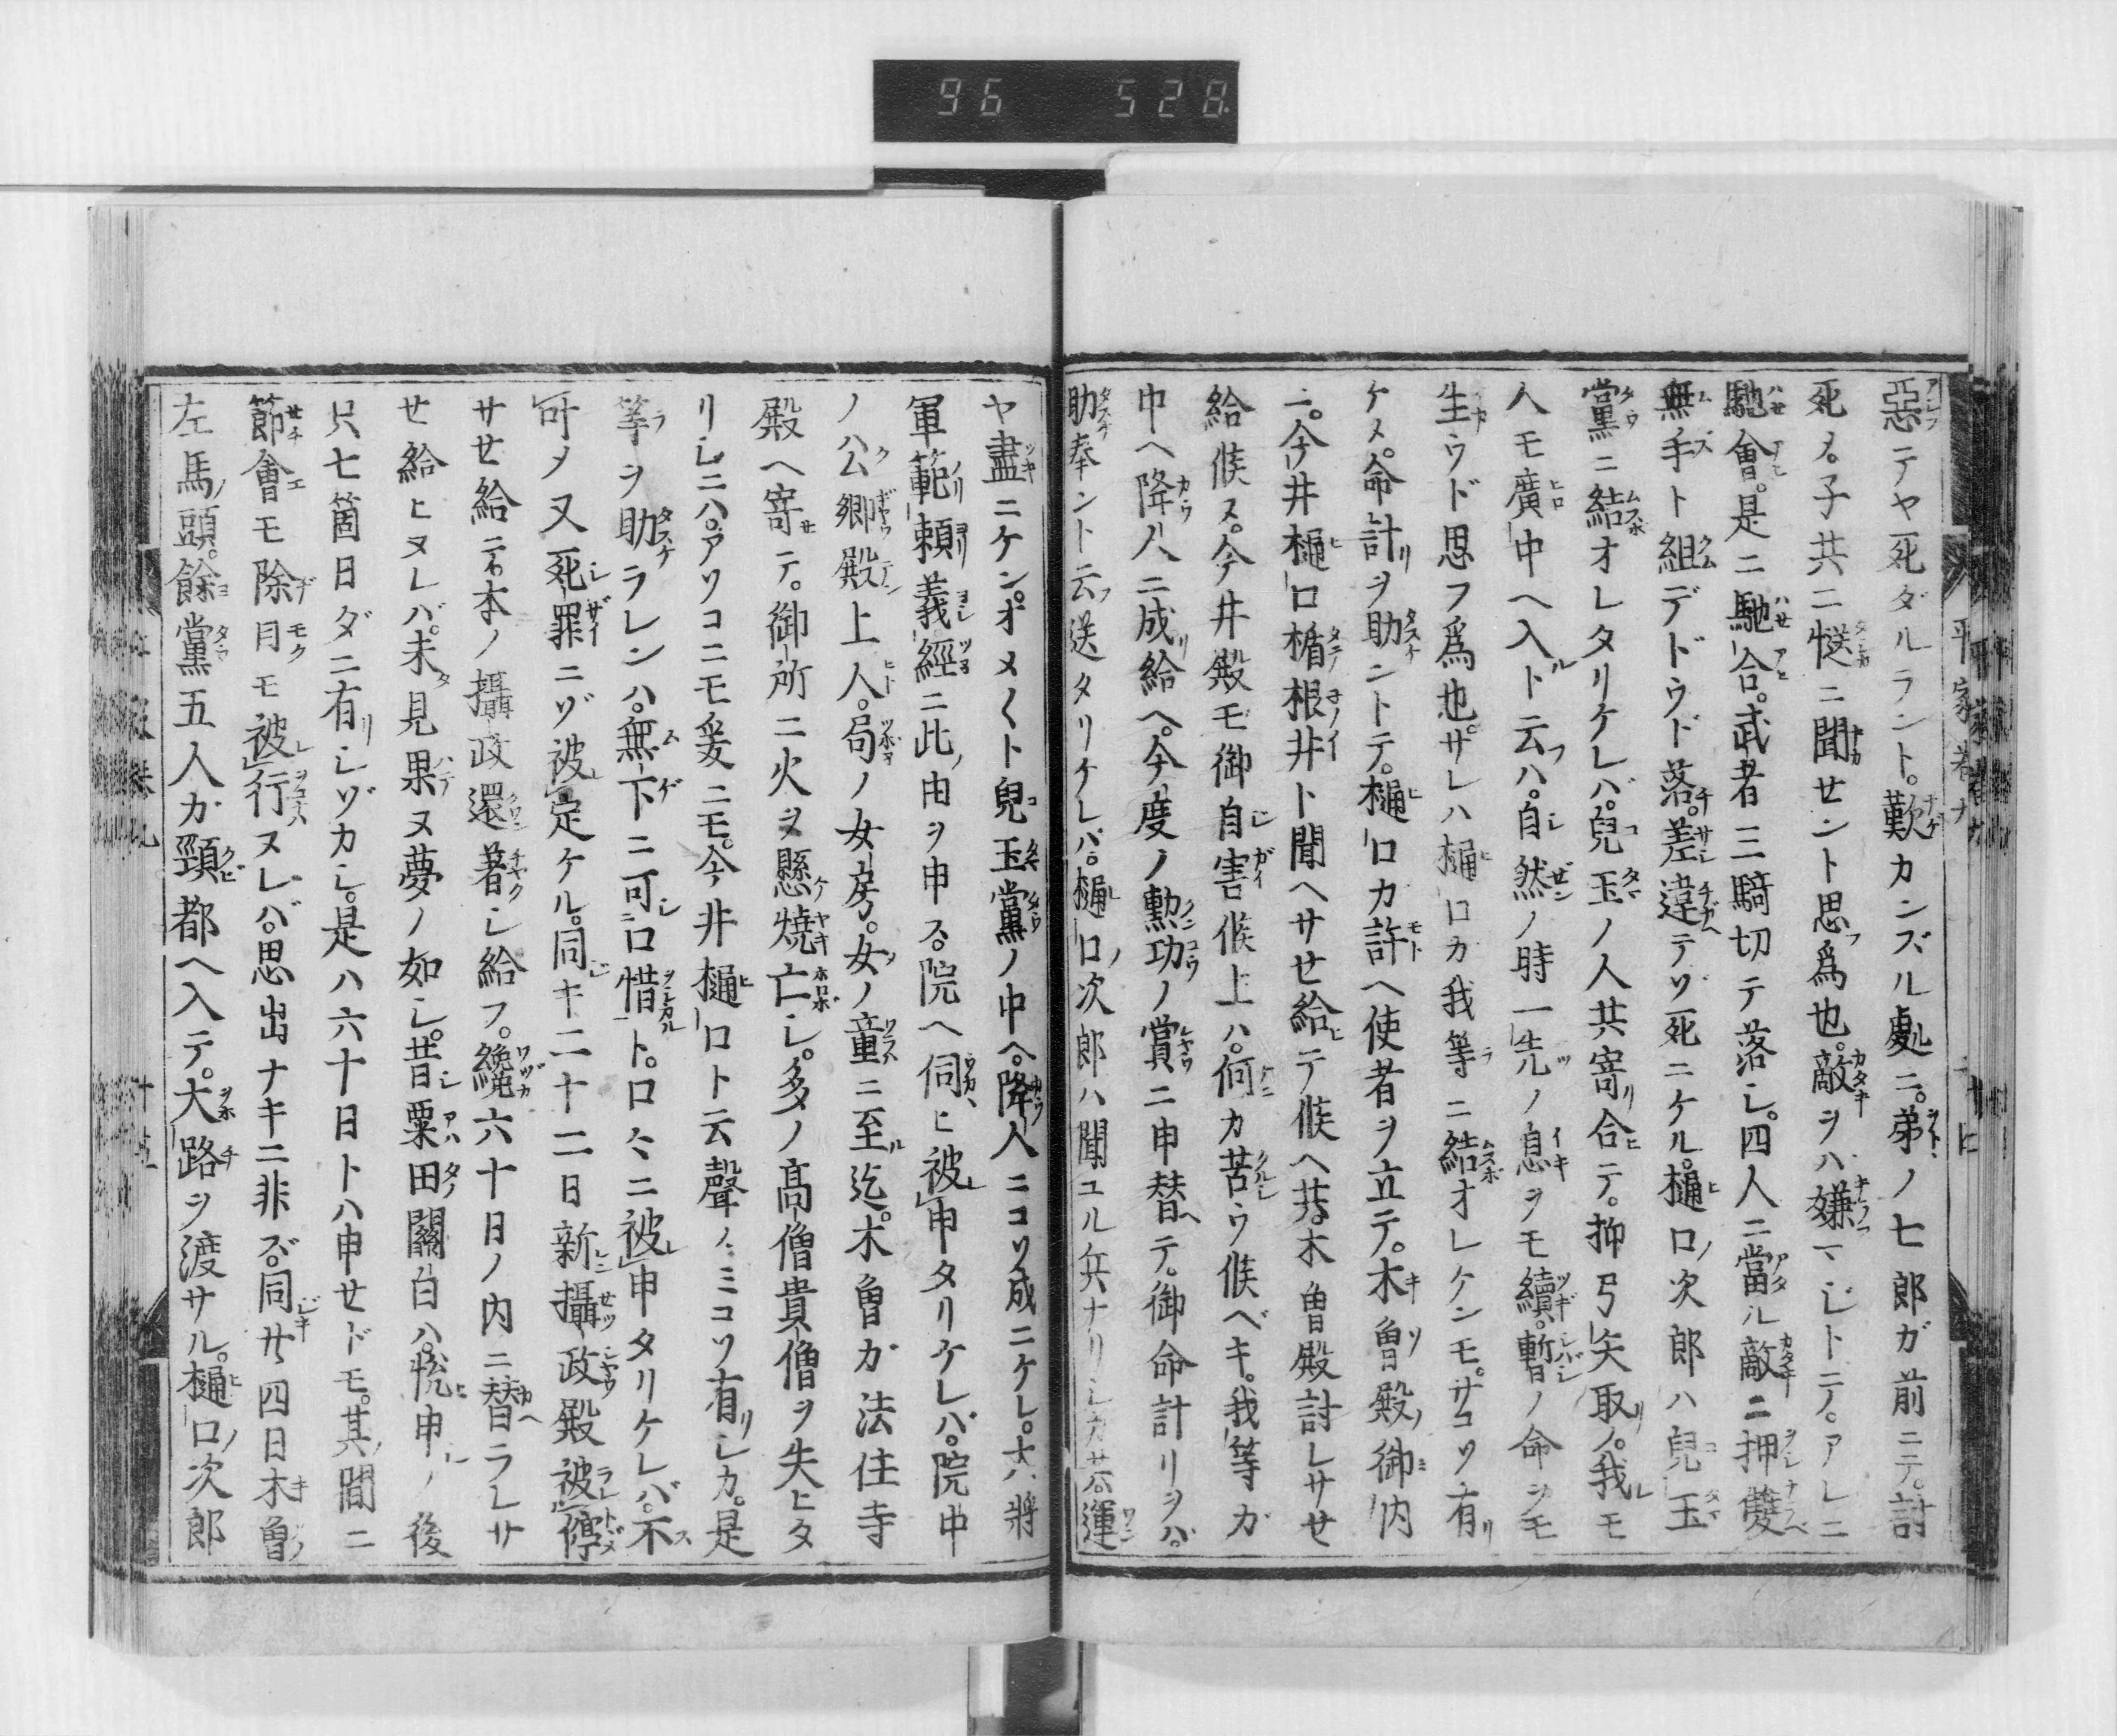 96 528
惡テヤ死ダルラント。歎カンズル處ニ。弟ノ七郎ガ前ニテ。討
死メ。子共ニ慥ニ聞セント思爲也。敵ヲハ嫌マジトテ。アレニ
馳會。是ニ馳合。武者三騎切テ落シ。四人ニ當ル敵ニ押雙
無手ト組デドウド落。差違テゾ死ニケル。樋口ノ次郎ハ兒玉
黨ニ結オレタリケレバ。兒玉ノ人共寄合テ。抑弓矢取ノ。我モ
人モ廣中ヘ入ト云ハ。自然ノ時一先ノ息ヲモ續。暫ノ命ヲモ
生ウド思フ爲也。サレハ樋口カ我等ニ結オレケンモ。サコソ有
ケメ。命計ヲ助ントテ。樋口カ許ヘ使者ヲ立テ。木曾殿ノ御内
ニ。今井樋口楯根井ト聞ヘサせ給テ候ヘ共。木曾殿討レサせ
給候ヌ。今井殿モ御自害候上ハ。何カ苦ウ候ベキ。我等ガ
中ヘ降人ニ成給ヘ。今度ノ勲功ノ賞ニ申替テ。御命計リヲバ。
助奉ント云送タリケレバ。樋口ノ次郎ハ聞ユル兵ナリシカ共。運
ヤ盡ニケン。オメ〱ト兒玉黨ノ中ヘ。降人ニコソ成ニケレ。大將
軍範頼義經ニ此由ヲ申ス。院ヘ伺ヒ被申タリケレバ。院中
ノ公卿殿上人。局ノ女房。女ノ童ニ至迄。木曾ガ法住寺
殿ヘ寄テ。御所ニ火ヲ懸燒亡シ。多ノ髙僧貴僧ヲ失ヒタ
リシニハ。アソコニモ爰ニモ。今井樋口ト云聲ノミコソ有シカ。是
等ヲ助ラレンハ。無下ニ可口惜ト。口々ニ被申タリケレバ。不
叶メ又死罪ニゾ被定ケル。同キ二十二日新攝政殿被停
サせ給テ。本ノ攝政還著シ給フ。纔六十日ノ内ニ替ラレサ
せ給ヒヌレバ。未見果ヌ夢ノ如シ。昔粟田關白ハ。悦申ノ後
只七箇日ダニ有シゾカシ。是ハ六十日トハ申せドモ。其間ニ
節會モ除目モ被行ヌレバ。思出ナキニ非ズ。同廿四日木曾
左馬頭。餘黨五人ガ頸都ヘ入テ。大路ヲ渡サル。樋口ノ次郎